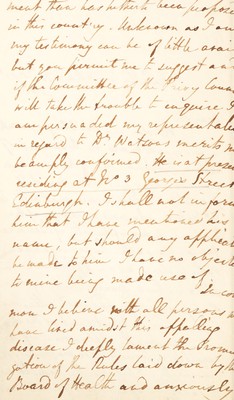 ment than has hitherto been propose
in this country. Unknown as I am
my testimony can be of little avai
but you permit me to suggest and
if the Committee of the Privy Counc
will take the trouble to enquire I
am persuaded my representatio
in regard to Dr. Watsons merits w
be amply confirmed. He is at prese
residing at No 3 Georges Street
Edinburgh. I shall not inform
him that I have mentioned his
name, but should any applicat
be made to him I have no objectio
to mine being made use of
In co
mon I believe with all persons w
have lived amidst this appalling
disease I deeply lament the prom
gation of the Rules laid down by th
Board of Health and anxiously